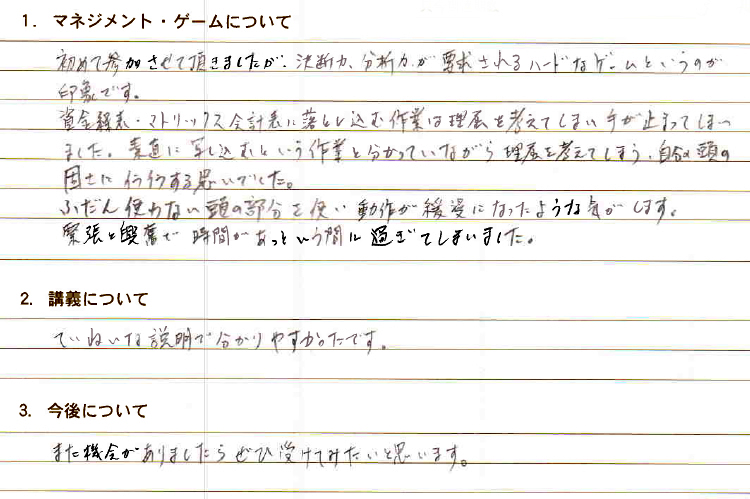 1. マネジメント・ゲームについて
初めて参加させて頂きましたが、決断力、分析力が要求されるハードなゲームというのが
印象です。
資金繰表・マトリックス会計表に落とし込む作業は理屈を考えてしまい手が止まってしまい
ました。素直に写し込むという作業と分かっていながら理屈を考えてしまう、自分の頭の
固さに何する思いでした。
ふだん使わない頭の部分を使い動作が緩慢になったような気がします。
緊張と興奮で時間があっという間に過ぎてしまいました。
2. 講義について
ていねいな説明で分かりやすかったです。
3. 今後について
また機会がありましたらぜひ受けてみたいと思います。